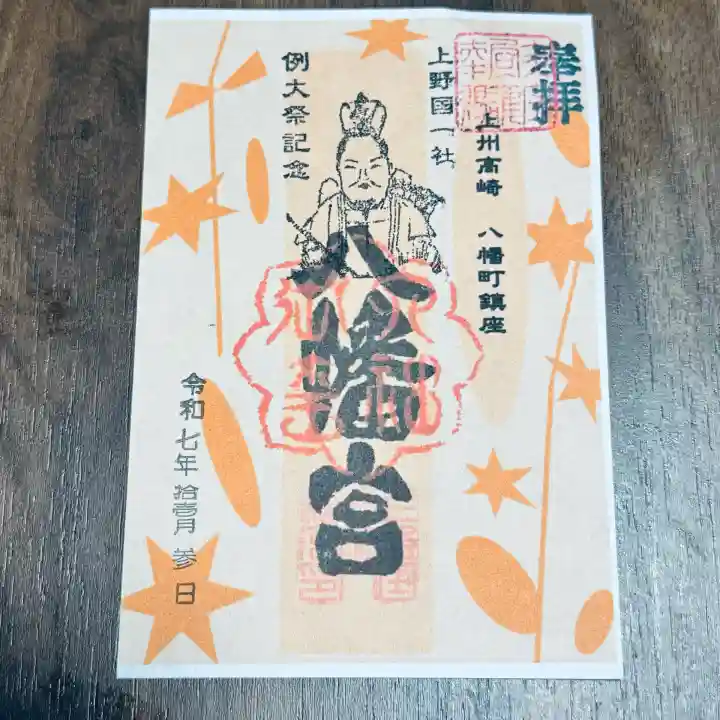 奉拝
上州高崎 八幡町鎮座
上野国一社
八幡宮
例大祭記念
令和七年 拾壱月 参日